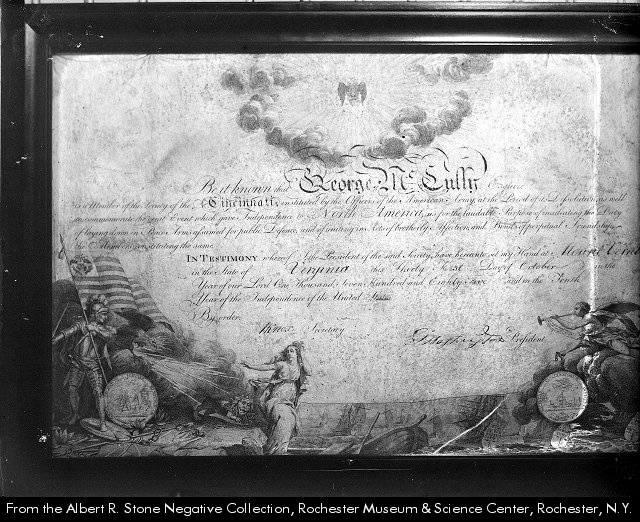 Be it known that George McCully Esquire
is a Member of the Society of the Cincinnati; instituted by the Officers of the American Army, at the Period of its Dissolution, as well
to commemorate the great Event which gave Independence to North America, as for the laudable Purpose of inculcating the Duty
of laying down in Peace Arms assumed for public Defence, and of uniting in Acts of brotherly Affection, and Bonds of perpetual Friendship,
the Members constituting the same.
IN TESTIMONY whereof I, the President of the said Society, have hereunto set my Hand at Mount Vernon
in the State of Virginia this Thirty First Day of October in the
Year of our Lord One Thousand Seven Hundred and Eighty Five and in the Tenth
Year of the Independence of the United States.
By order,
Knox Secretary
G Washington President
From the Albert R. Stone Negative Collection, Rochester Museum & Science Center, Rochester, N.Y.